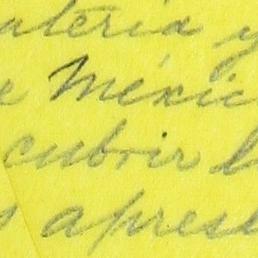 ateria y
e Méxic
cubrir l
s aprese